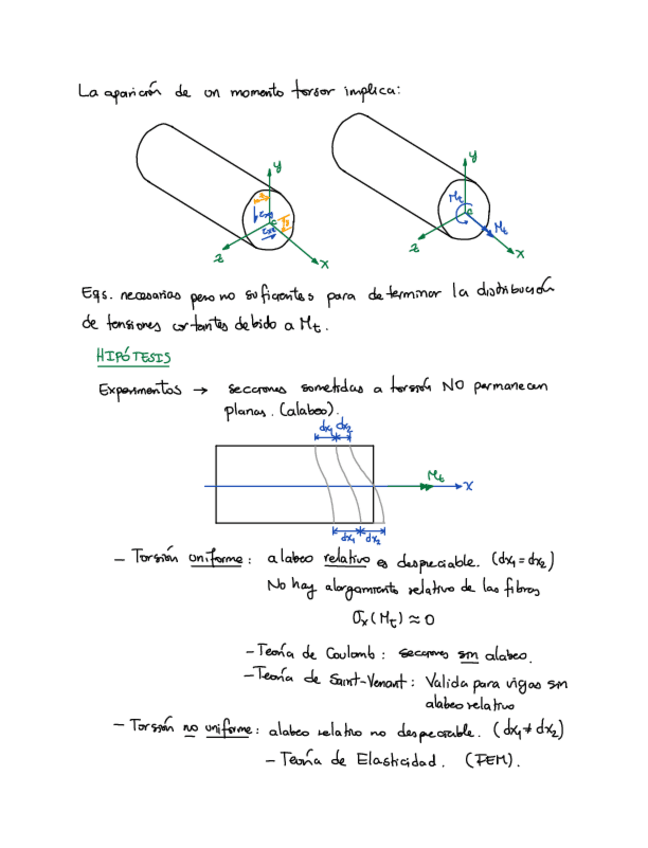 La aparición de un momento torsor implica:
y
y
Mt
τxy
τxz
G
G
Mt
z
x
z
x
Eqs. necesarias pero no suficientes para determinar la distribución
de tensiones cortantes debido a Mt.
HIPÓTESIS
Experimentos → secciones sometidas a torsión NO permanecen
planas. (alabeo).
dx1 dx2
Mt
x
dx1 dx2
- Torsión uniforme: alabeo relativo es despreciable. (dx1 = dx2)
No hay alargamiento relativo de las fibras
σx (Mt) ≈ 0
- Teoría de Coulomb: secciones sin alabeo.
- Teoría de Saint-Venant: Valida para vigas sin
alabeo relativo
- Torsión no uniforme: alabeo relativo no despreciable. (dx1 ≠ dx2)
- Teoría de Elasticidad. (FEM).